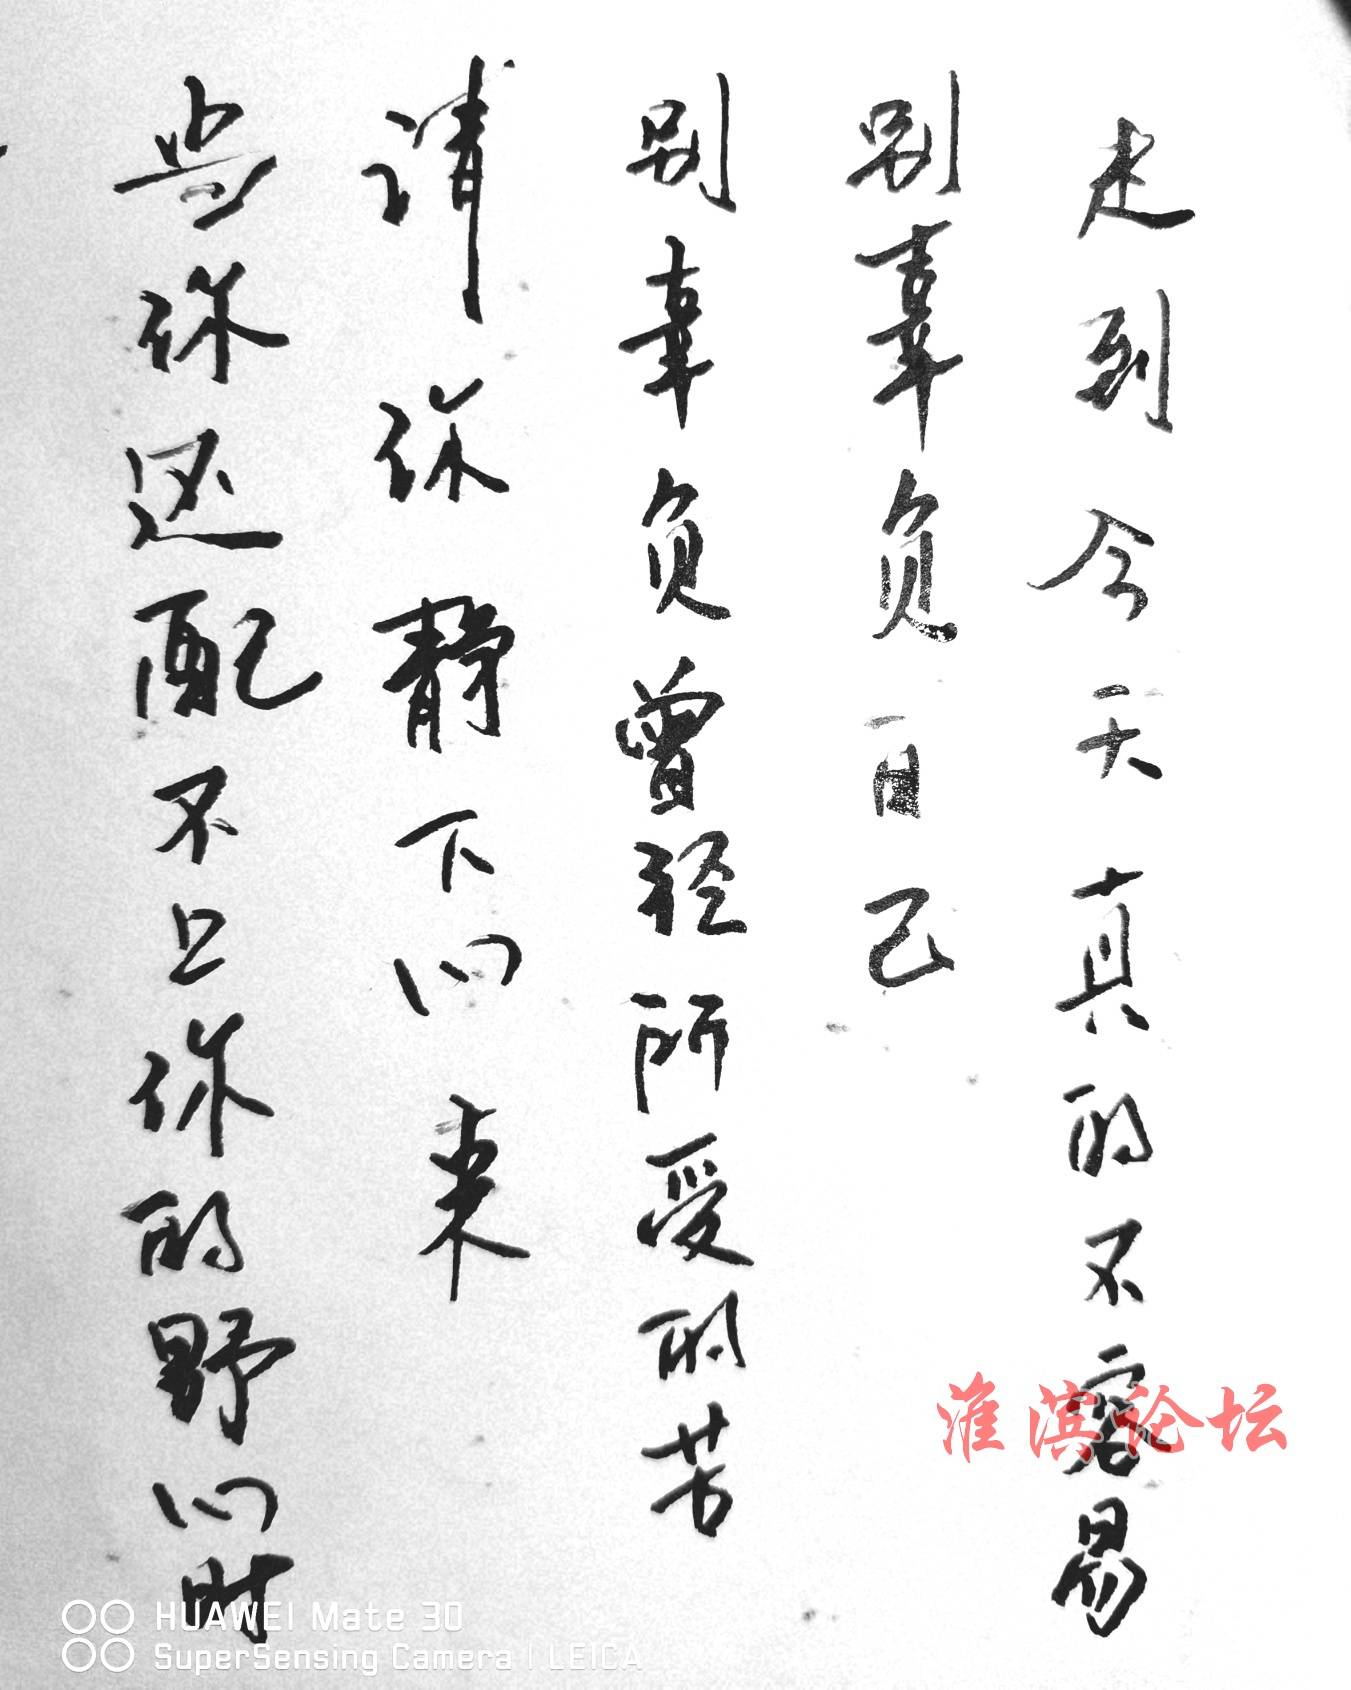 走到今天真的不容易
别辜负自己
别辜负曾经所受的苦
请你静下心来
当你还配不上你的野心时
淮滨论坛
HUAWEI Mate 30
SuperSensing Camera | LEICA